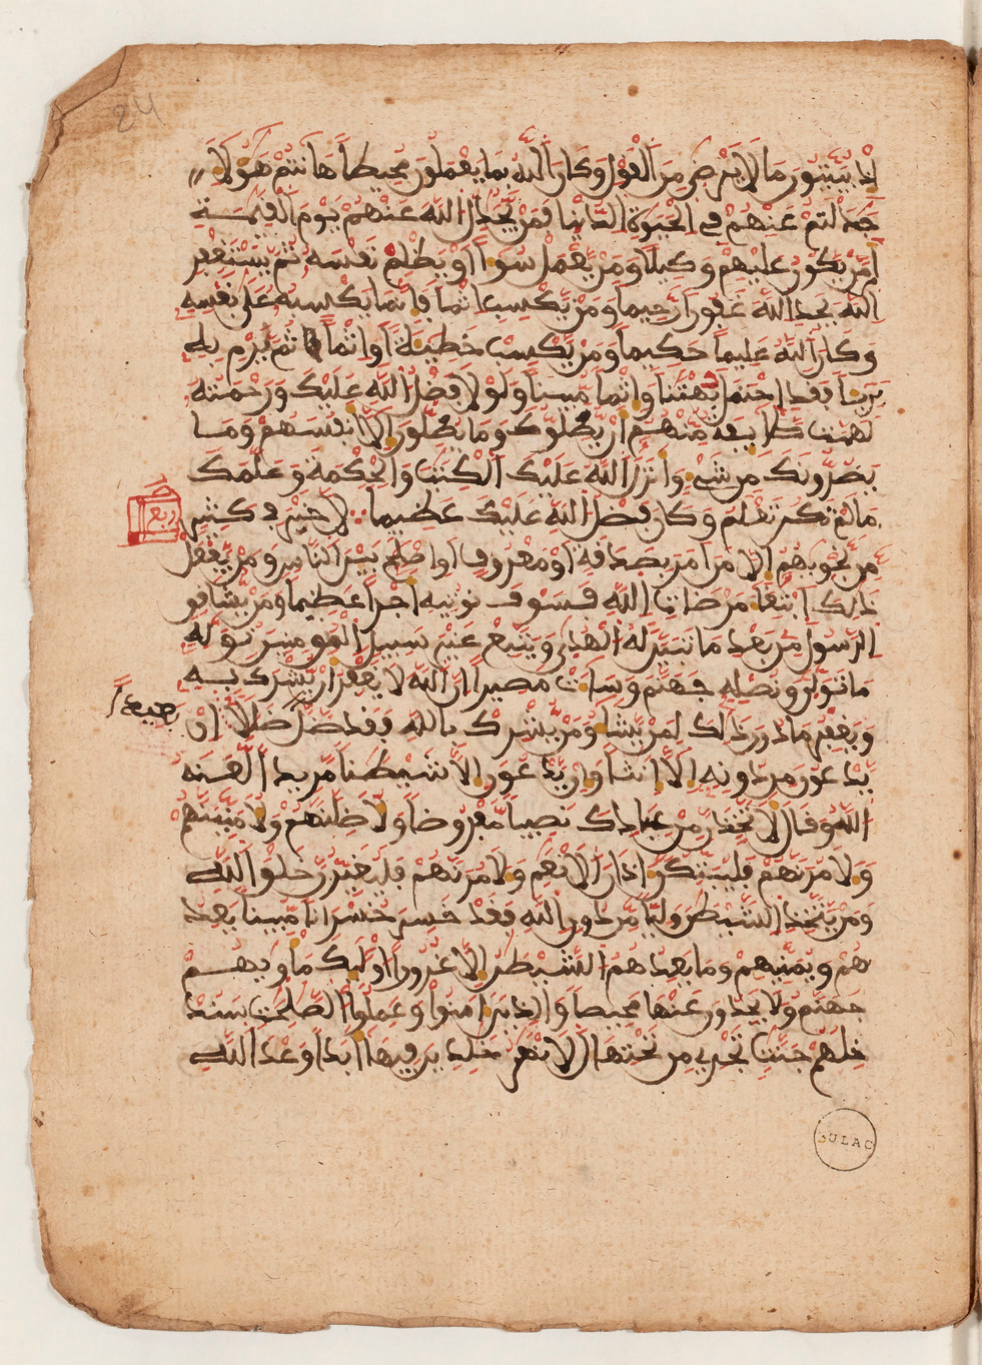 إذ يبيتون ما لا يرضى من القول وكان الله بما يعملون محيطا هانتم هؤلا
جدلتم عنهم في الحيوة الدنيا فمن يجدل الله عنهم يوم القيمة
ام من يكون عليهم وكيلا ومن يعمل سوءا او يظلم نفسه ثم يستغفر
الله يجد الله غفورا رحيما ومن يكسب اثما فإنما يكسبه على نفسه
وكان الله عليما حكيما ومن يكسب خطيئة أو اثما ثم يرم به
بريا فقد احتمل بهتنا واثما مبينا ولولا فضل الله عليك ورحمته
لهمت طايفة منهم ان يضلوك وما يضلون الا انفسهم وما
يضرونك من شيء وانزل الله عليك الكتب والحكمة وعلمك
ما لم تكن تعلم وكان فضل الله عليك عظيما لا خير في كثير
ربع
من نجويهم الا من امر بصدقة او معروف او اصلح بين الناس ومن يفعل
ذلك ابتغا مرضات الله فسوف نوتيه اجرا عظيما ومن يشاقق
الرسول من بعد ما تبين له الهدى ويتبع غير سبيل المومنين نوله
ما تولى ونصله جهنم وسات مصيرا ان الله لا يغفر ان يشرك به
ويغفر ما دون ذلك لمن يشا ومن يشرك بالله فقد ضل ضللا ان
بعيدا
يدعون من دونه الا انثا وان يدعون الا شيطنا مريدا لعنه
الله وقال لاتخذن من عبادك نصيبا مفروضا ولاضلنهم ولامنينهم
ولامرنهم فليبتكن اذان الانعم ولامرنهم فليغيرن خلق الله
ومن يتخذ الشيطن وليا من دون الله فقد خسر خسرانا مبينا يعد
هم ويمنيهم وما يعدهم الشيطن الا غرورا اوليك ماويهم
جهنم ولا يجدون عنها محيصا والذين امنوا وعملوا الصلحت سند
خلهم جنت تجري من تحتها الانهر خلدين فيها ابدا وعد الله
BULAC
24